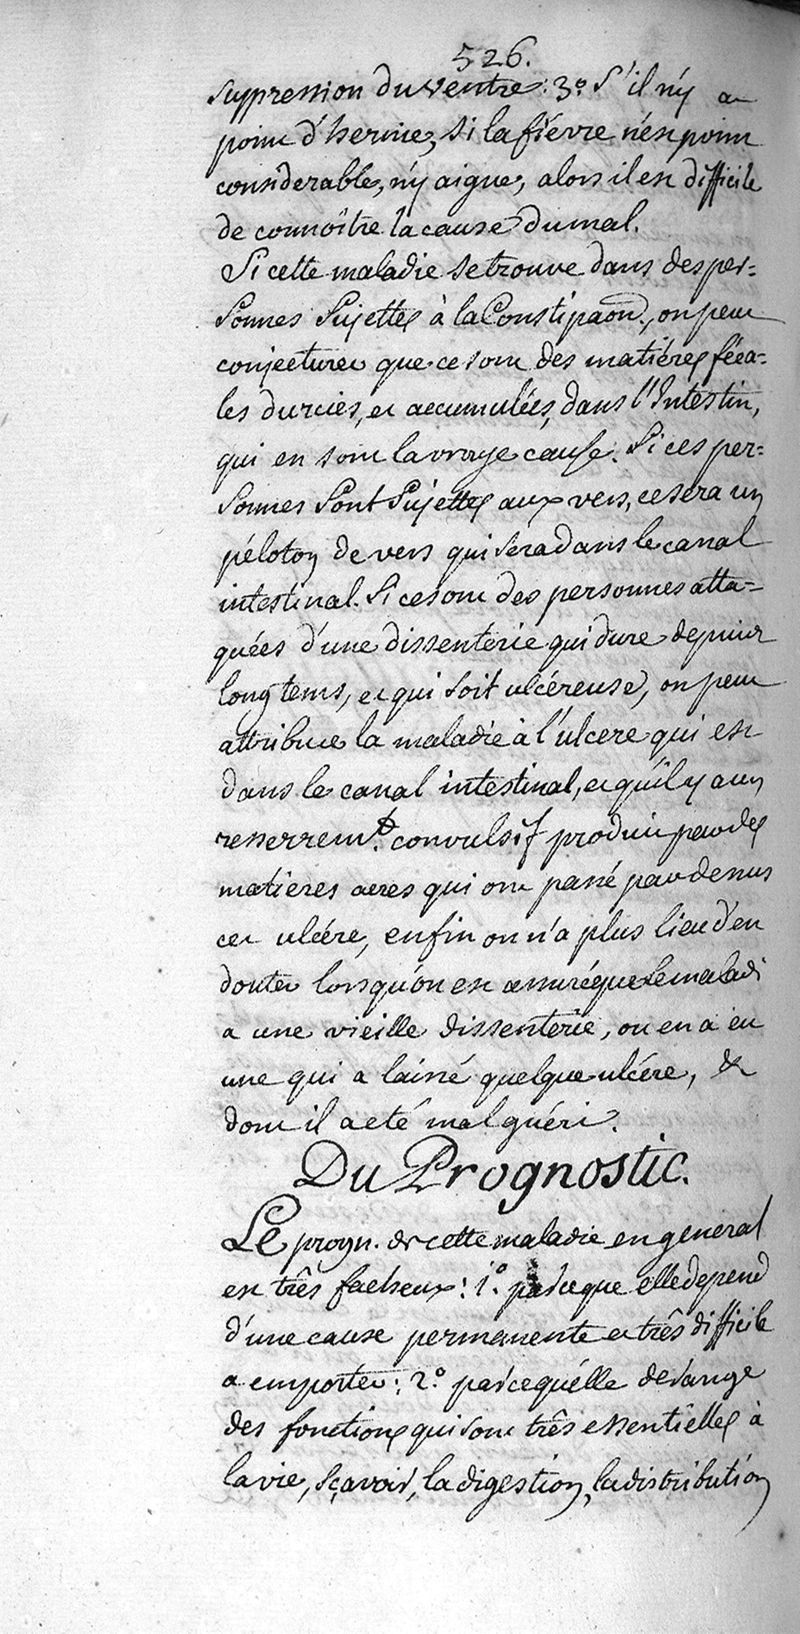 526.
suppression du ventre: 3.° S'il n'y a
point d'hernie, si la fiévre n'est point
considerable, n'y aigue, alors il est difficile
de connoître la cause du mal.
Si cette maladie se trouve dans des per=
sonnes sujettes à la Constipaon., on peut
conjecturer que ce sont des matiéres féca=
les durcies, et accumulées, dans l'Intestin,
qui en sont la vraye cause. Si ces per=
sonnes sont sujettes aux vers, ce sera un
péloton de vers qui sera dans le canal
intestinal. Si ce sont des personnes atta=
quées d'une dissenterie qui dure depuis
long tems, et qui soit ulcéreuse, on peut
attribuer la maladie à l'ulcere qui est
dans le canal intestinal, et qu'il y a un
resserremt. convulsif produit par des
matieres acres qui ont passé par dessus
cet ulcére, enfin on n'a plus lieu d'en
douter lorsqu'on est assuré que le maladi
a une vieille dissenterie, ou en a eu
une qui a laissé quelque ulcére, &
dont il a eté mal guéri.
Du Prognostic.
Le progn. de cette maladie en general
est três facheux: 1.° parceque elle depend
d'une cause permanente et três difficile
a emporter: 2.° parcequ'elle derange
des fonctions qui sont três essentielles à
la vie, sçavoir, la digestion, la distribution